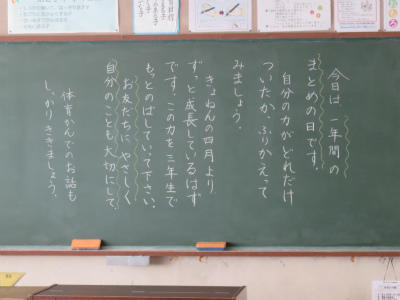 今日は、一年間の
まとめの日です。
自分の力がどれだけ
ついたか、ふりかえって
みましょう。
きょねんの四月より
ずっと成長しているはず
です。この力を三年生で
もっとのばしていって下さい。
お友だちにやさしく
自分のことも大切にして。
体育かんでのお話も
しっかりききましょう。